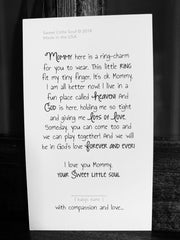 Sweet Little Soul © 2019
Made in the USA
Mommy here is a ring-charm
for you to wear. This little RING
fit my tiny finger. It's ok Mommy,
I am all better now! I live in a
fun place called HEAVEN! And
GOD is here, holding me so tight
and giving me LOTS OF LOVE.
Someday, you can come too and
we can play together! And we will
be in God's love FOREVER AND EVER!
I love you Mommy,
YOUR SWEET LITTLE SOUL
with compassion and love...